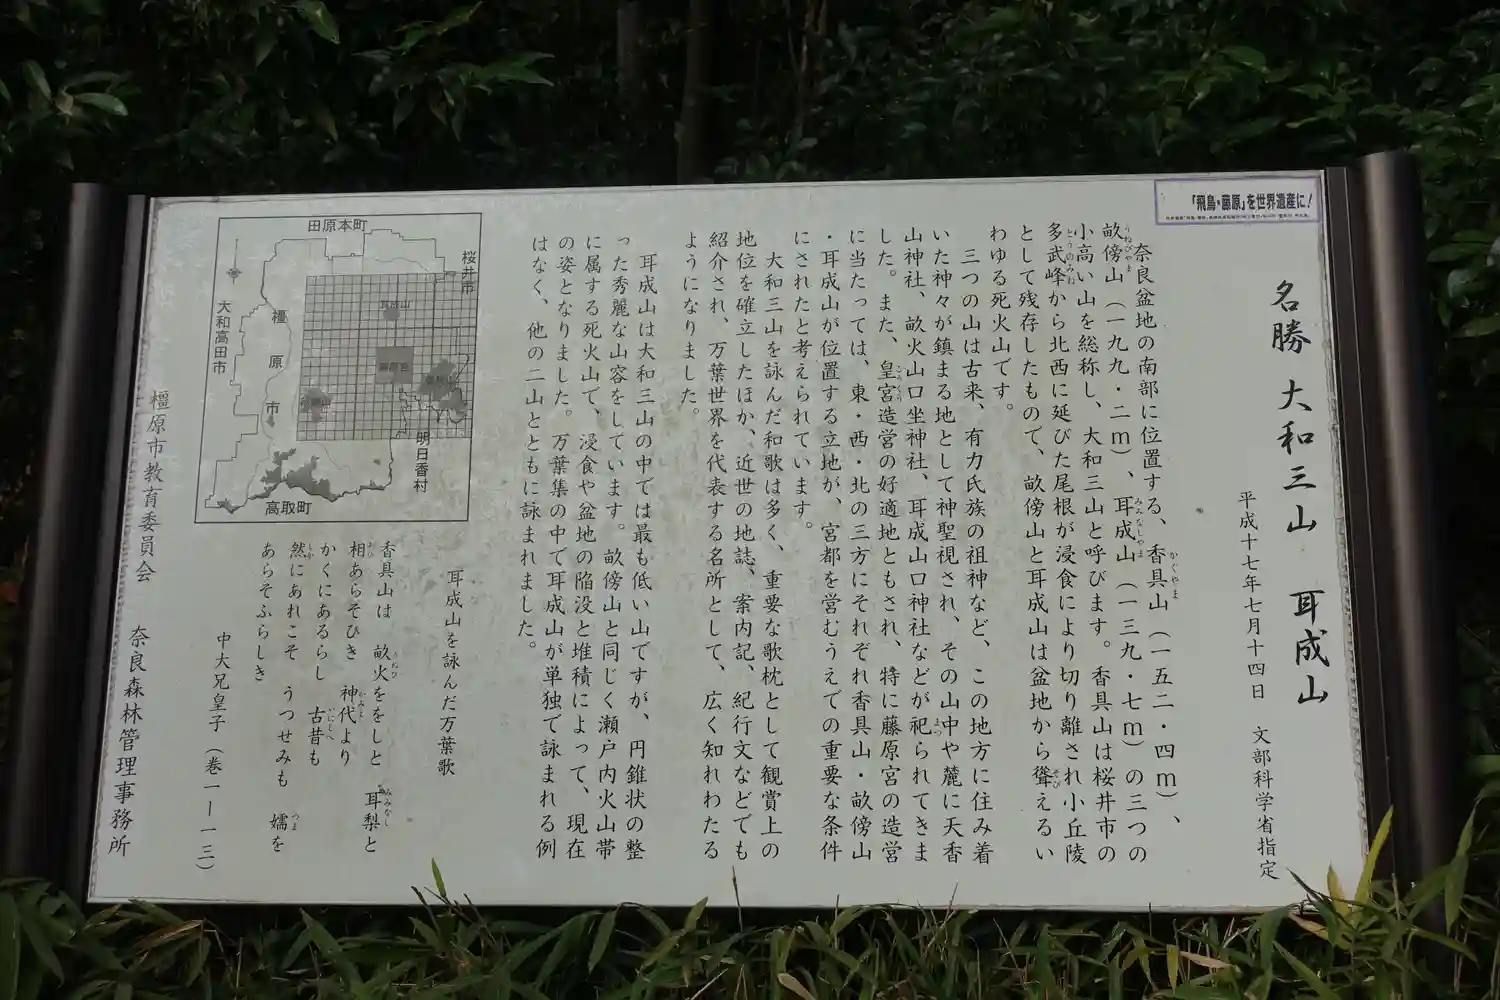 「飛鳥・藤原」を世界遺産に!
名勝 大和三山 耳成山
平成十七年七月十四日 文部科学省指定
奈良盆地の南部に位置する、香具山(一五二・四m)、
畝傍山(一九九・二m)、耳成山(一三九・七m)の三つの
小高い山を総称し、大和三山と呼びます。香具山は桜井市の
多武峰から北西に延びた尾根が浸食により切り離され小丘陵
として残存したもので、畝傍山と耳成山は盆地から聳えるい
わゆる死火山です。
三つの山は古来、有力氏族の祖神など、この地方に住み着
いた神々が鎮まる地として神聖視され、その山中や麓に天香
山神社、畝火山口坐神社、耳成山口神社などが祀られてきま
した。また、皇宮造営の好適地ともされ、特に藤原宮の造営
に当たっては、東・西・北の三方にそれぞれ香具山・畝傍山
・耳成山が位置する立地が、宮都を営むうえでの重要な条件
にされたと考えられています。
大和三山を詠んだ和歌は多く、重要な歌枕として観賞上の
地位を確立したほか、近世の地誌、案内記、紀行文などでも
紹介され、万葉世界を代表する名所として、広く知れわたる
ようになりました。
耳成山は大和三山の中では最も低い山ですが、円錐状の整
った秀麗な山容をしています。畝傍山と同じく瀬戸内火山帯
に属する死火山で、浸食や盆地の陥没と堆積によって、現在
の姿となりました。万葉集の中で耳成山が単独で詠まれる例
はなく、他の二山とともに詠まれました。
耳成山を詠んだ万葉歌
香具山は 畝火ををしと 耳梨と
相あらそひき 神代より
かくにあるらし 古昔も
然にあれこそ うつせみも 嬬を
あらそふらしき
中大兄皇子(巻一―一三)
田原本町
桜井市
大和高田市
橿原市
耳成山
藤原宮
明日香村
高取町
橿原市教育委員会 奈良森林管理事務所